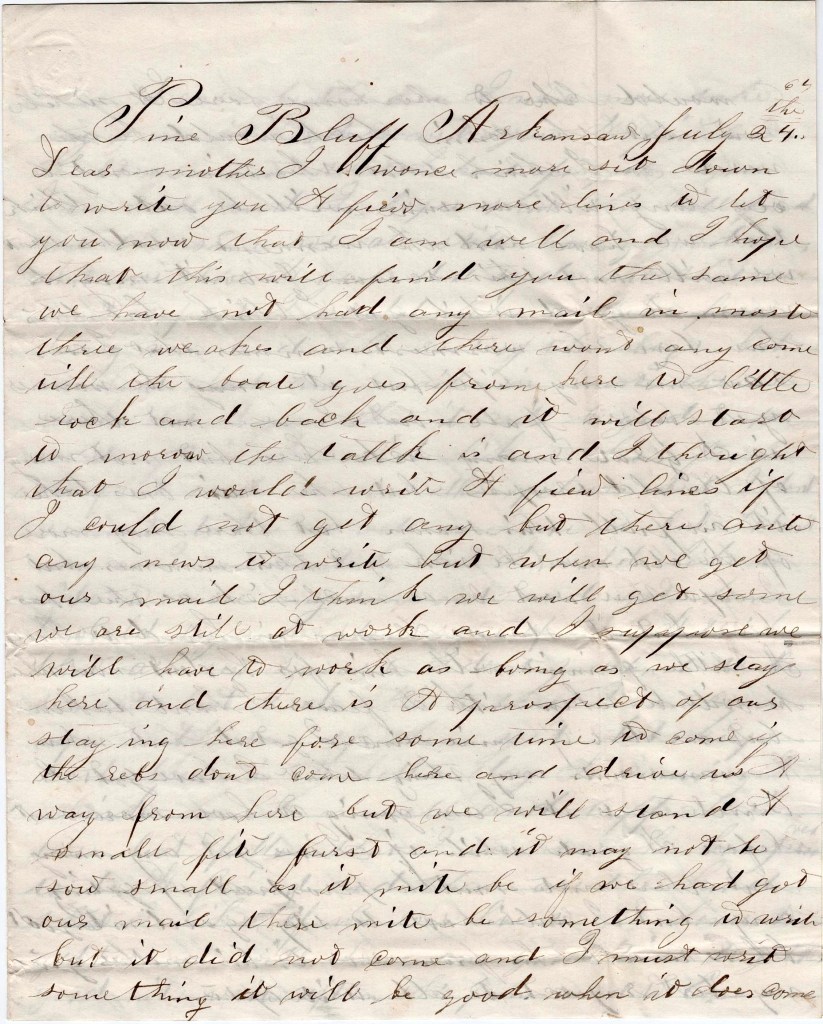 64
Pine Bluff Arkansaw July the 24..
Dear mother I wonce more sit down
to write you A fiew more lines to let
you now that I am well and I hope
that this will find you the same
we have not had any mail in moste
three weakes and there wont any come
till the boate goes frome here to little
rock and back and it will start
to morow the tallk is and I thought
that I would write A fiew lines if
I could not get any but there ante
any news to write but when we get
our mail I think we will get some
we are still at work and I suppose we
will have to work as long as we stay
here and there is A prospect of our
staying here fore some time to come if
the rebs dont come here and drive us A
way from here but we will stand A
small fite furst and it may not be
sow small as it mite be if we had got
our mail there mite be something to write
but it did not come and I must writ
something it will be good when it does come